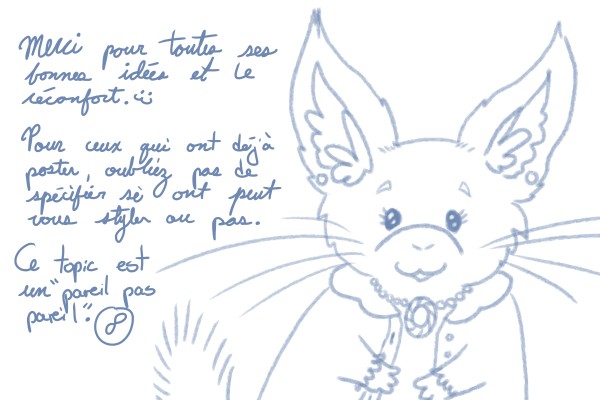 Merci pour toutes ses
bonnes idées et le
réconfort. :)
Pour ceux qui ont déjà
poster, oubliéz pas de
spécifiér sè ont peut
vous styler ou pas.
Ce topic est
un "pareil pas
pareil".